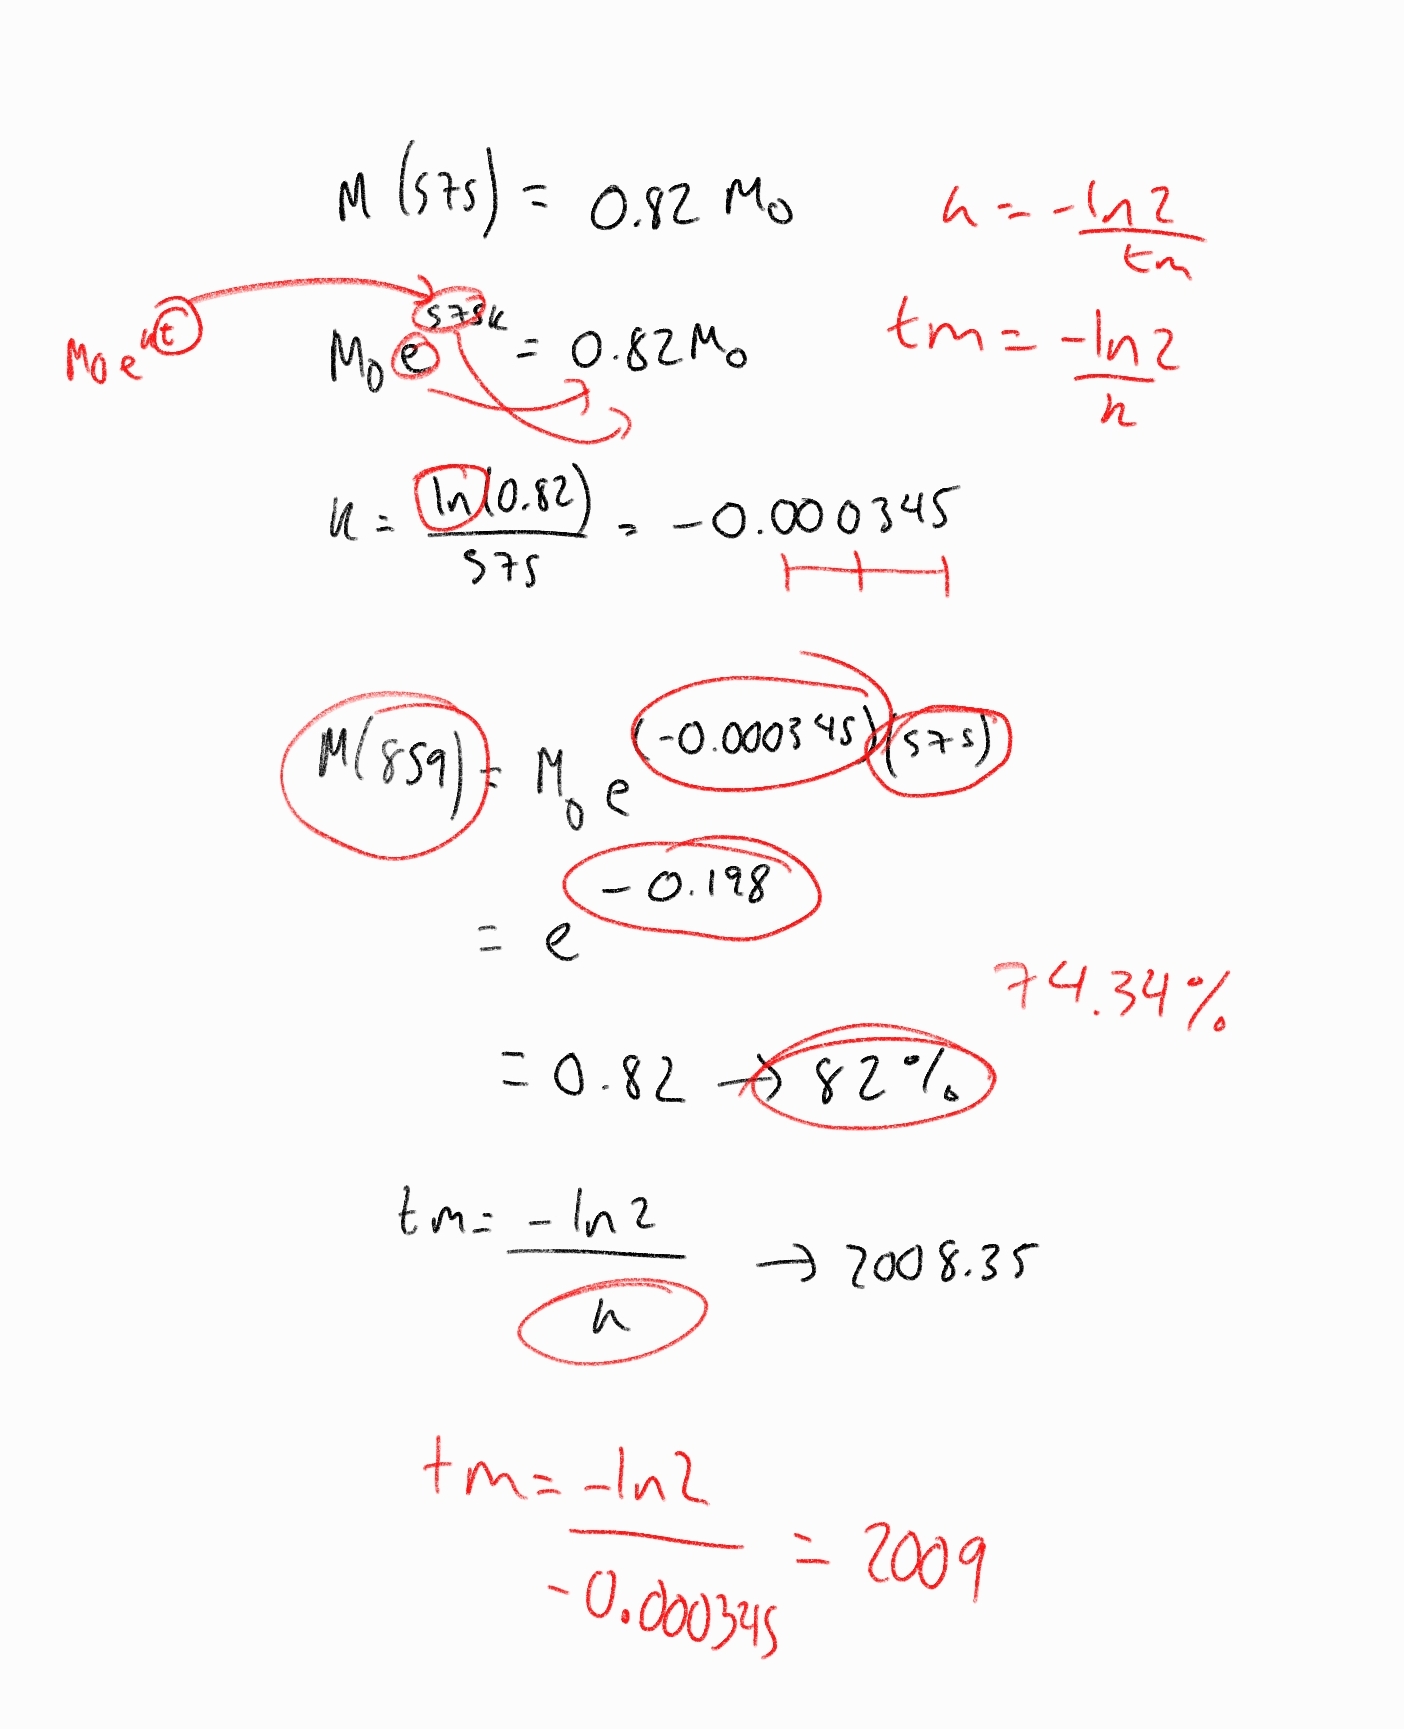 M(575) = 0.82 M₀
k = -ln2/tm
M₀e^kt
M₀e^575k = 0.82M₀
tm = -ln2/k
k = ln(0.82)/575 = -0.000345
M(859) = M₀e^(-0.000345)(575)
= e^-0.198
74.34%
= 0.82 → 82%
tm = -ln2/k → 2008.35
tm = -ln2/-0.000345 = 2009